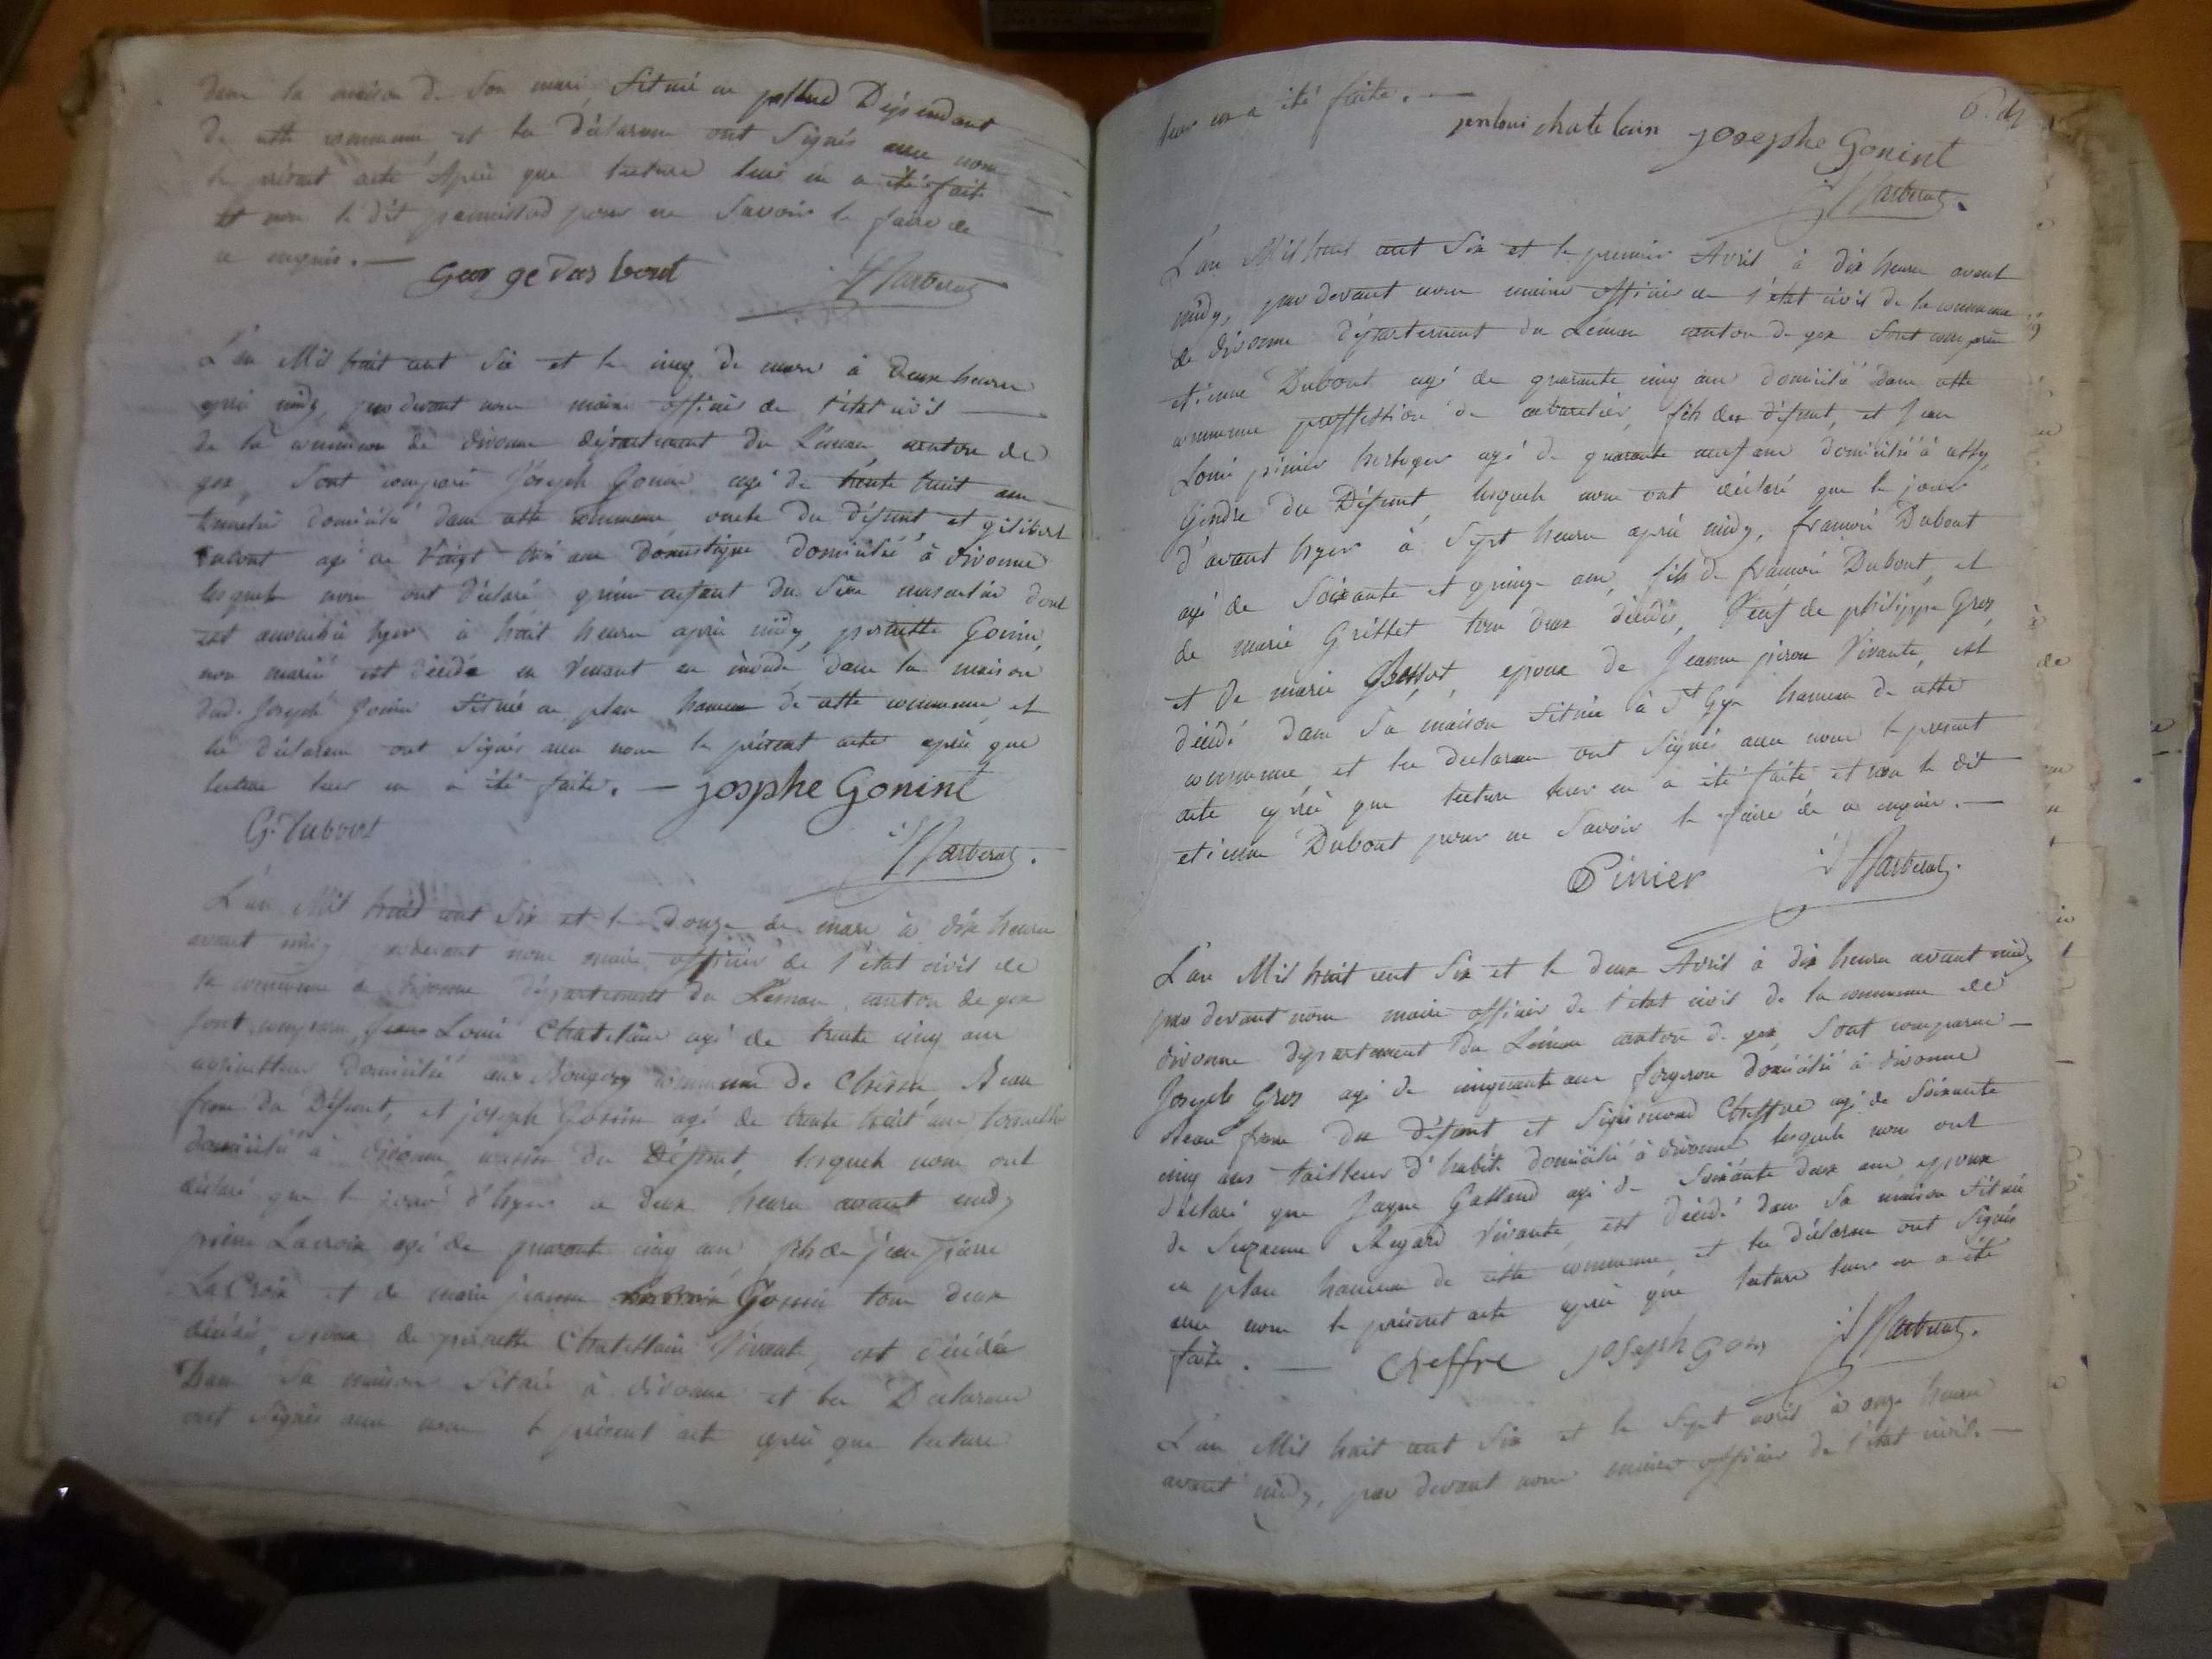 dans la maison de son mari, situé en plans Dépendant
de cette commune, et les déclarans ont signés avec nous
le présent acte après que lecture leur en a été faite
et non le dit pour ne savoir le faire de
ce enquis. —
George Dasbout
L'an Mil huit cent six et le cinq de mars à deux heures
après midy, par devant nous maire officier de l'état civil —
de la commune de divonne département du Léman, canton de
gex, sont comparu Joseph Gonin agé de trente huit ans
domicilié dans cette commune oncle du défunt et gilibert
Dubout agé de vingt trois ans domestique domicilié à divonne
lesquels nous ont déclaré qu'une enfant du sexe masculin dont
est accouchée hyer à huit heures après midy, pernette Gonin,
non mariée est décédé en venant au monde, dans la maison
dud. Joseph Gonin située en plan hameau de cette commune, et
les déclarans ont signés avec nous le présent acte après que
lecture leur en a été faite. — josphe Gonint
G. Dubout
L'an Mil huit cent six et le Douze de mars à dix heures
avant midy, pardevant nous maire officier de l'état civil de
la commune de divonne département du Léman, canton de gex
sont comparu, Jean Loui Chatelain agé de trente cinq ans
domicilié aux commune de Beau
frere du Défunt, et joseph Gonin agé de trente huit ans
domicilié à divonne, cousin du Défunt, lesquels nous ont
déclaré que le jour d'hyer a deux heures avant midy
pierre Lacroix agé de quarante cinq ans, fils de jean pierre
La Croix et de marie jeanne Gonin tous deux
décédés, epoux de pernette Chatellain vivante, est décédé
Dans sa maison située à divonne et les Déclarans
ont signés avec nous le présent acte après que lecture
leur en a été faite. —
jenloui chatelain josephe Gonint
L'an Mil huit cent six et le premier Avril, à dix heures avant
midy, par devant nous maire officier de l'état civil de la commune
de divonne département du Léman canton de gex sont comparu
etienne Dubout agé de quarante cinq ans domicilié dans cette
commune proffession de cabaretier, fils du défunt, et Jean
Loui pinier horloger agé de quarante neuf ans domicilié à
Gendre du Défunt, lesquels nous ont déclaré que le jour
d'avant hyer à sept heures après midy, françois Dubout
agé de soixante et quinze ans, fils de françois Dubout, et
de marie Grillet tous deux décédés, Veuf de philippe Gros,
et de marie epoux de Jeanne Vivante, est
décédé dans sa maison située à St Gyx hameau de cette
commune et les declarans ont signés avec nous le present
acte après que lecture leur en a été faite et non le dit
etienne Dubout pour ne savoir le faire de ce enquis. —
Pinier
L'an Mil huit cent six et le deux Avril à dix heures avant midy
par devant nous maire officier de l'état civil de la commune de
divonne département du Léman canton de gex sont comparu —
Joseph Gros agé de cinquante ans forgeron domicilié à divonne
Beau frere du défunt et Sigismond Cheffre agé de soixante
cinq ans tailleur d'habit domicilié à divonne lesquels nous ont
déclaré que Jayme Galland agé de soixante deux ans epoux
de Suzanne Regard Vivante, est décédé dans sa maison située
en plan hameau de cette commune et les déclarans ont signés
avec nous le présent acte après que lecture leur en a été
faite. — cheffre joseph gros
L'an Mil huit cent six et le sept avril à onze heures
avant midy, par devant nous maire officier de l'état civil. —